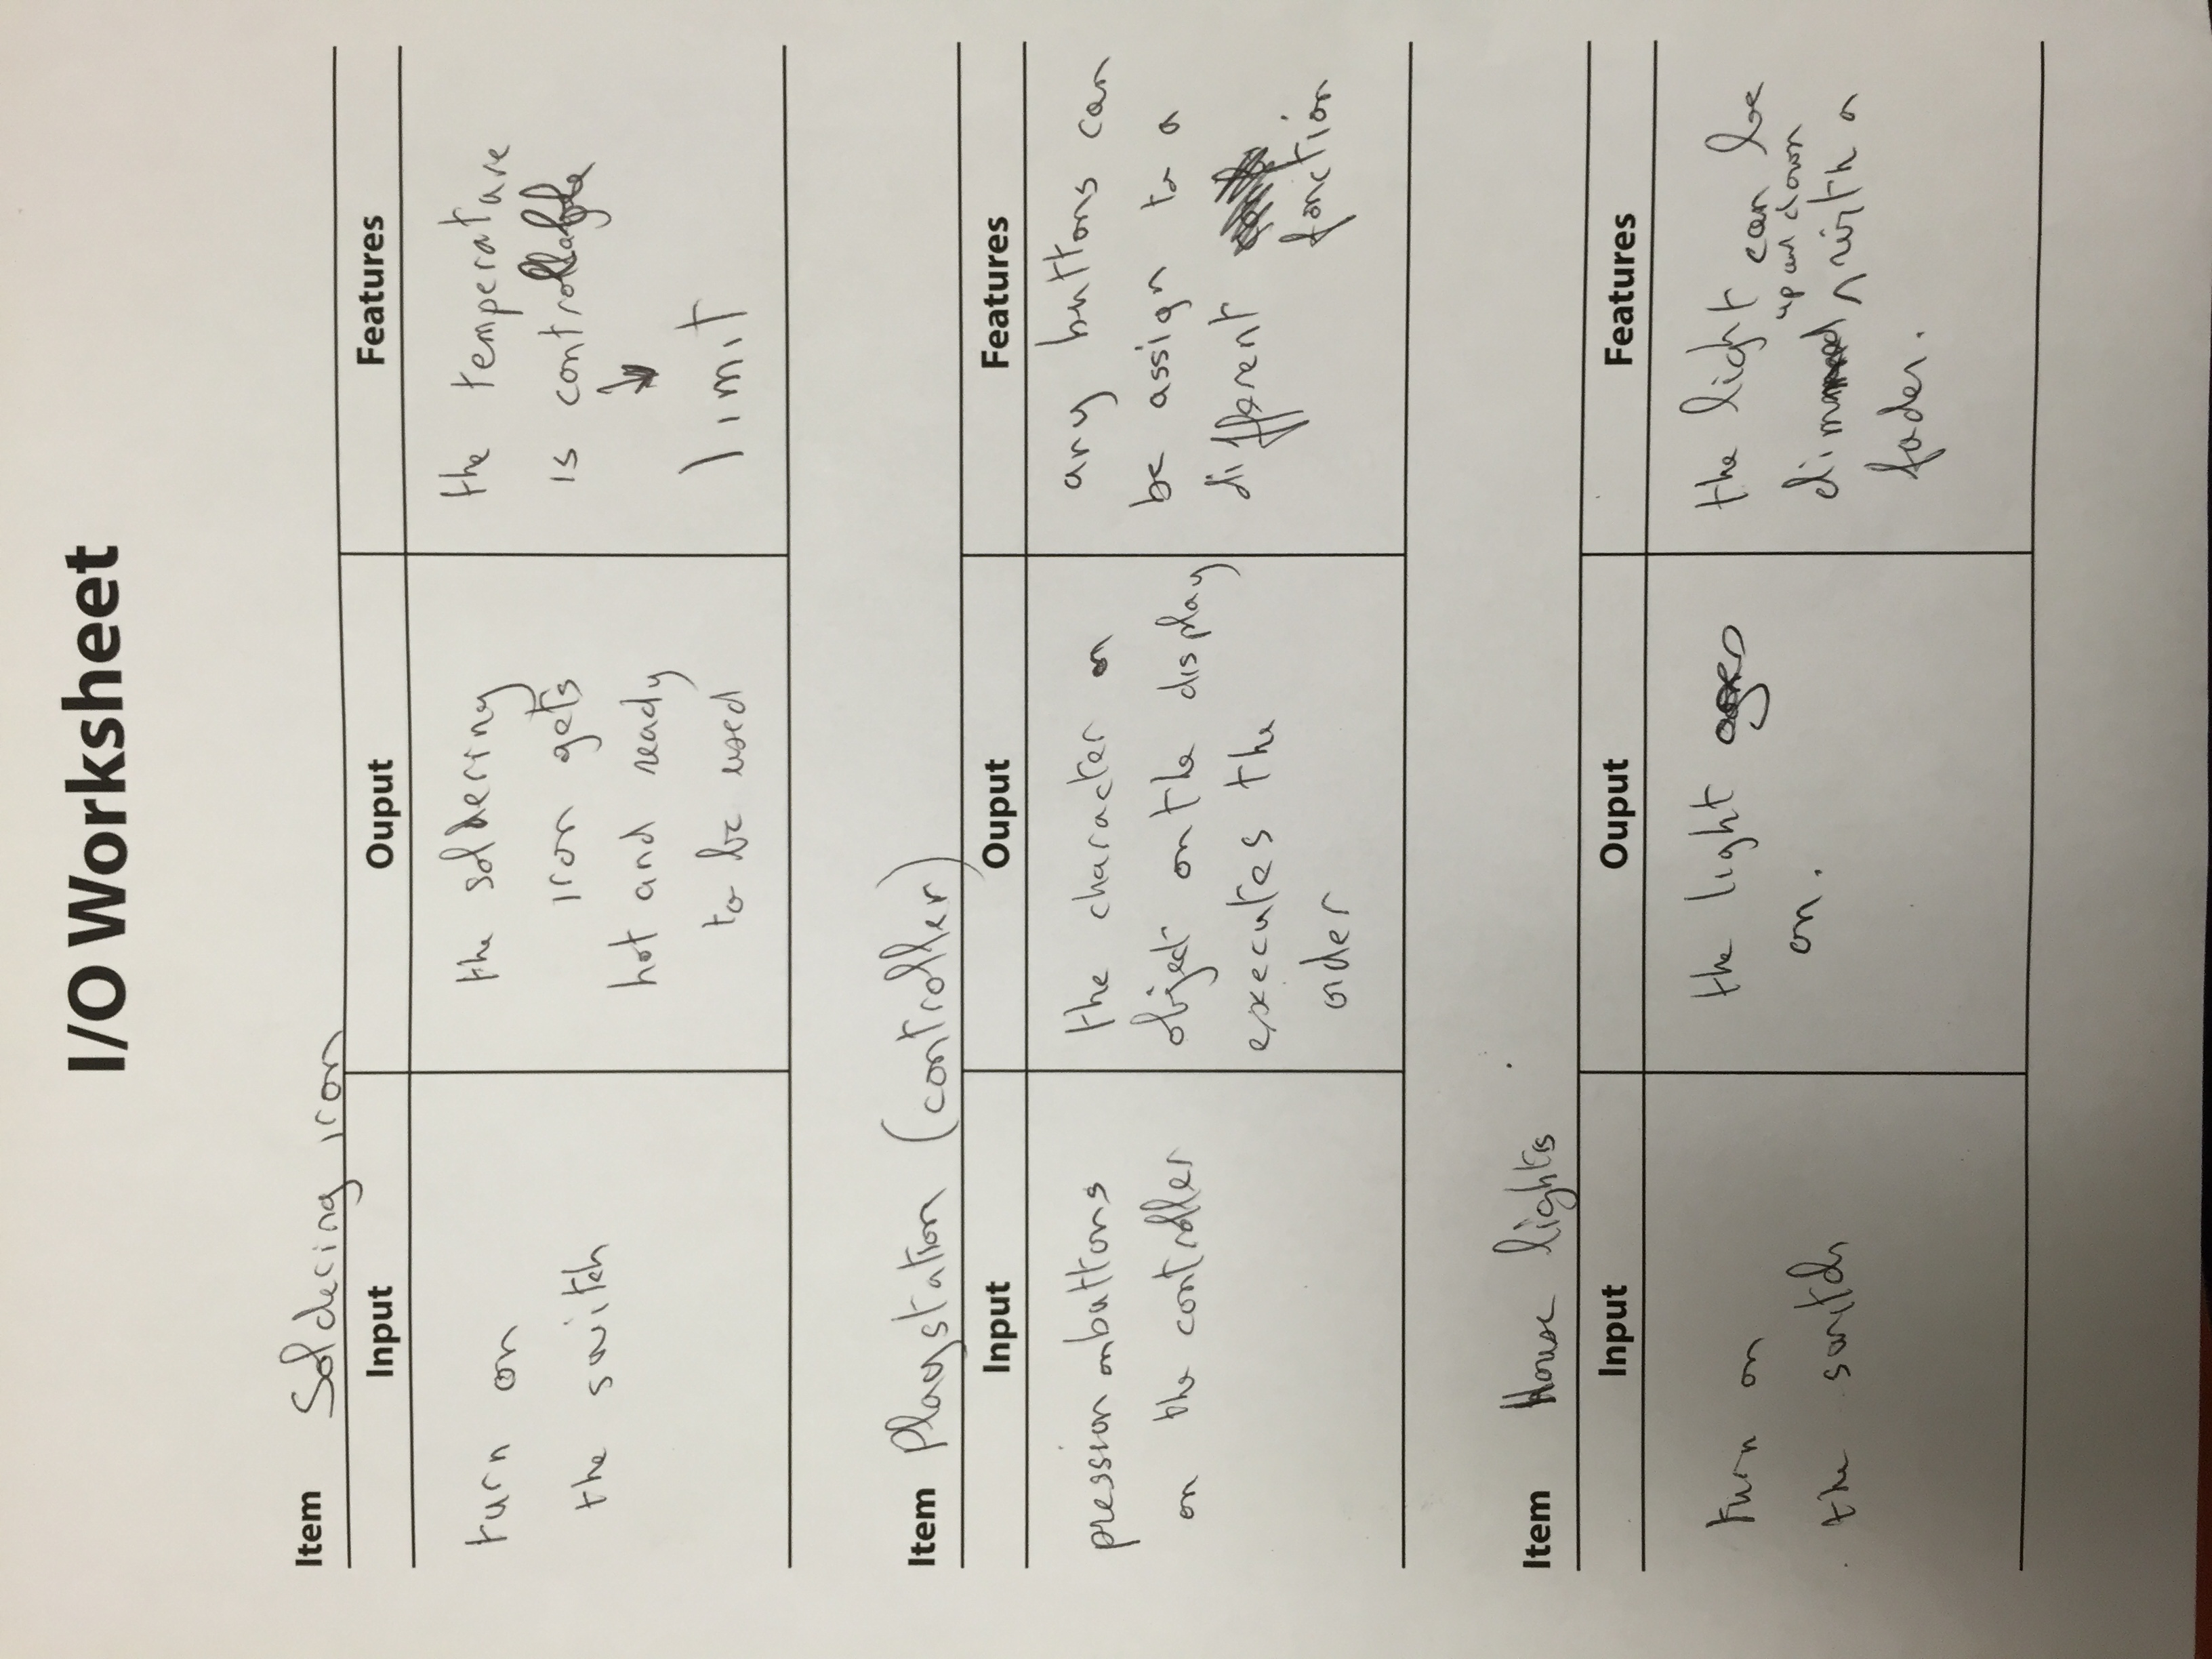 I/O Worksheet
Item Soldering iron
Input Ouput Features
turn on
the switch
the soldering
iron gets
hot and ready
to be used
the temperature
is controllable
↓
limit
Item Playstation (controller)
Input Ouput Features
pression on buttons
on the controller
the character or
object on the display
executes the
order
any buttons can
be assign to a
different
fonction
Item House lights
Input Ouput Features
turn on
the switch
the light goes
on.
the light can be
up and down
dimmed ^ with a
fader.